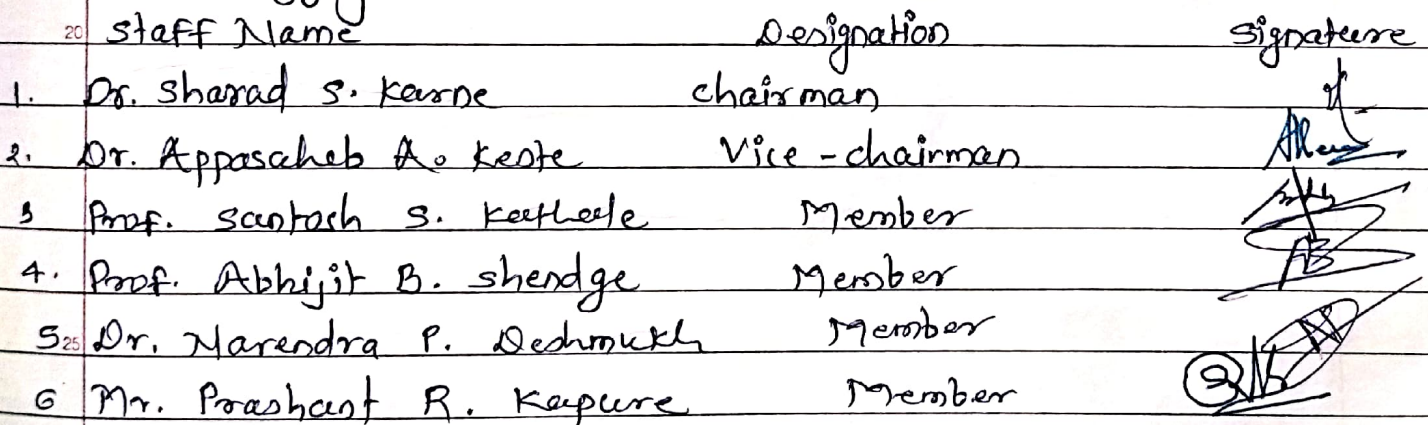 20 Staff Name Designation Signature
1. Dr. Sharad S. Karne Chairman
2. Dr. Appasaheb A. Keste Vice-chairman
3 Prof. Santosh S. Member
4. Prof. Abhijit B. Shendge Member
5 25 Dr. Narendra P. Deshmukh Member
6 Mr. Prashant R. Kapure Member